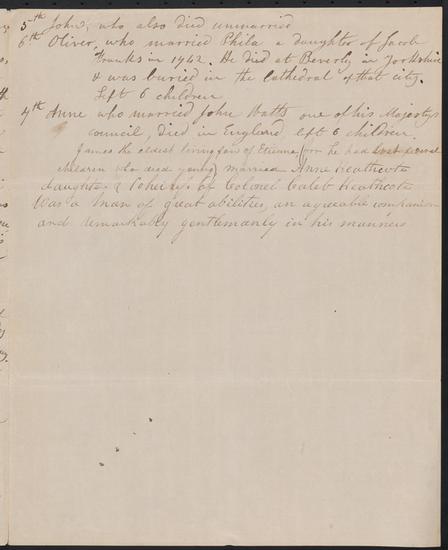 5th John, who also died unmarried
6th Oliver, who married Phila a daughter of Jacob
Franks in 1742. He died at Beverly in Yorkshire
& was buried in the Cathedral of that city.
Left 6 children
7th Anne who married John Watts one of his Majestys
council, died in England left 6 children.
James the oldest living son of Etienne (for he had lost several
children who died young) married Anne Heathcote
daughter & of Colonel Caleb Heathcote
Was a man of great abilities, an agreeable companion
and remarkably gentlemanly in his manners